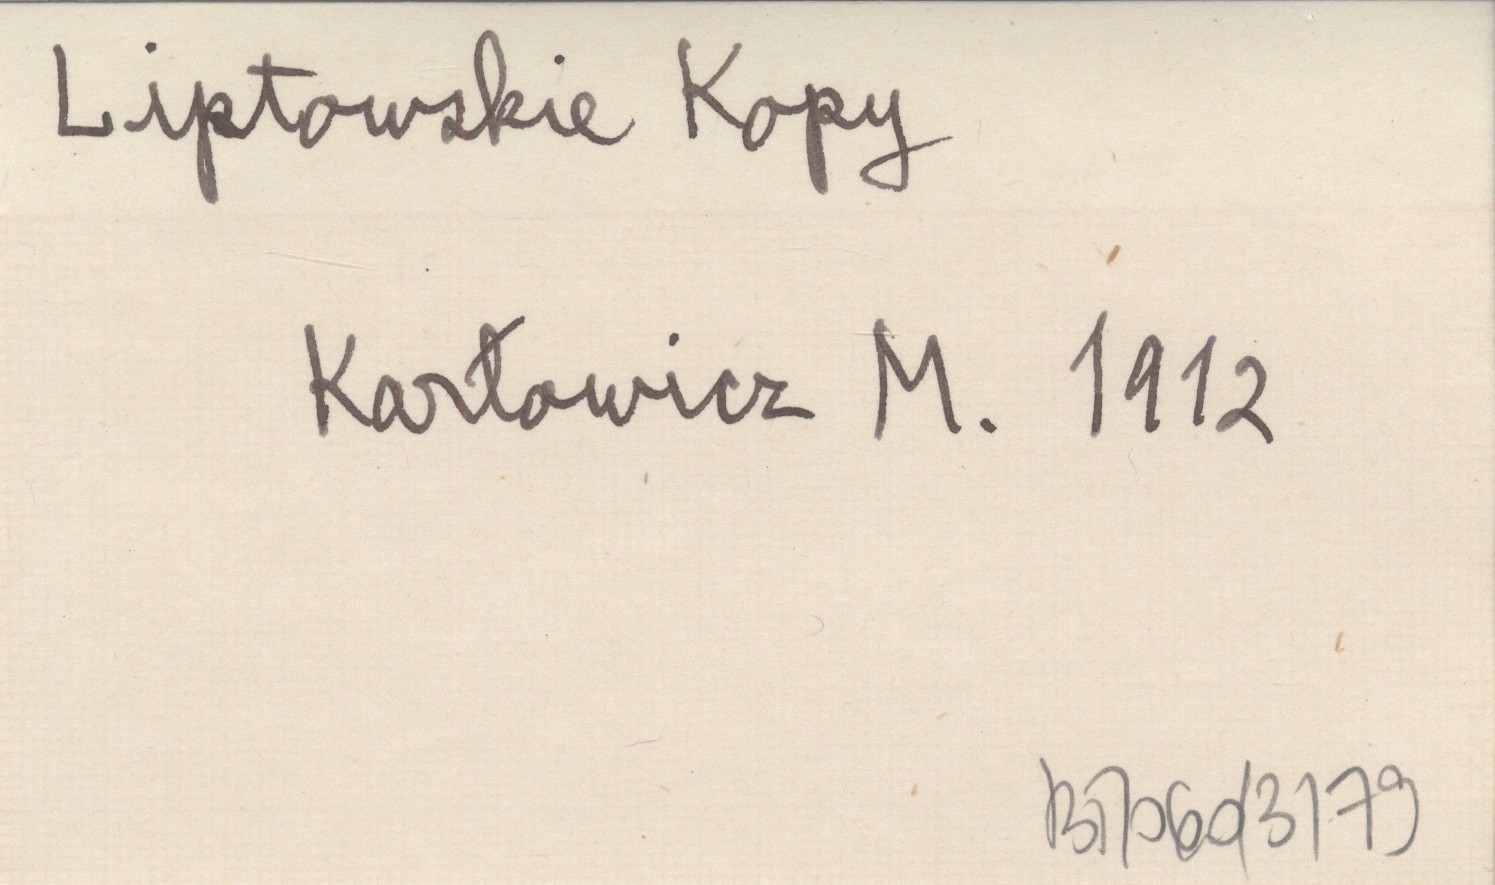 Liptowskie Kopy
Karłowicz M. 1912